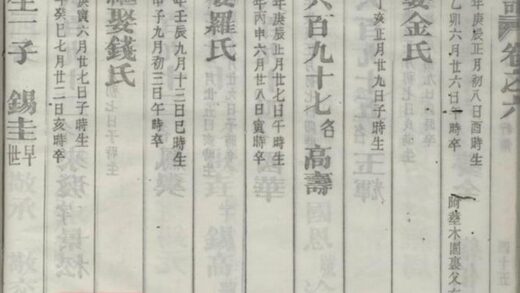 卷之六
年庚辰正月初八日酉時生
乙卯六月廿六日 時卒 附葬木園裏父
娶金氏
亥正月廿九日子時生
六百九十七名高壽
年庚辰正月廿七日午時生
年丙申六月廿八日寅時卒
娶羅氏
年壬辰九月十二日巳時生
子九月初三日午時卒
繼娶錢氏
庚寅六月廿七日子時生
年癸巳七月廿二日亥時卒
生二子 錫圭早世